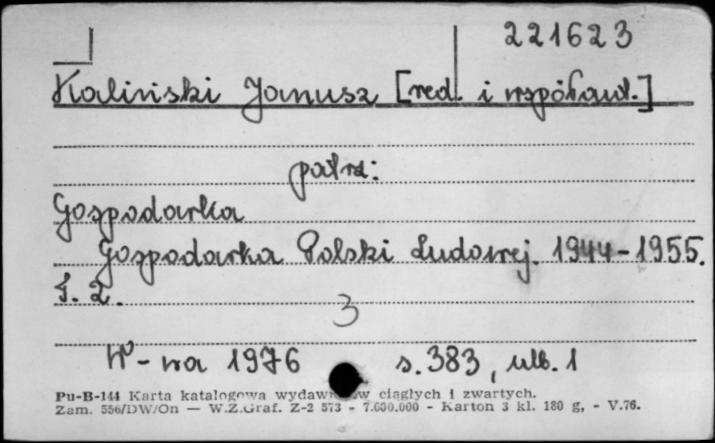 221623
Kaliński Janusz [red. i współaut.]
patrz:
Gospodarka
Gospodarka Polski Ludowej. 1944-1955.
T. 2.
3
W-wa 1976 s. 383, nlb. 1
Pu-B-144 Karta katalogowa wydawnictw ciągłych i zwartych.
Zam. 556/DW/On — W.Z.Graf. Z-2 573 - 7.600.000 - Karton 3 kl. 180 g, - V.76.